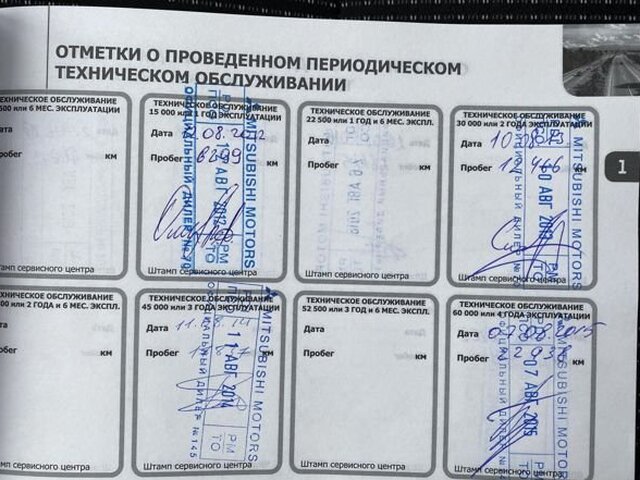 ОТМЕТКИ О ПРОВЕДЕННОМ ПЕРИОДИЧЕСКОМ
ТЕХНИЧЕСКОМ ОБСЛУЖИВАНИИ
ТЕХНИЧЕСКОЕ ОБСЛУЖИВАНИЕ
500 или 6 МЕС. ЭКСПЛУАТАЦИИ
Дата
Пробег км
Штамп сервисного центра
ТЕХНИЧЕСКОЕ ОБСЛУЖИВАНИЕ
15 000 или 1 ГОД ЭКСПЛУАТАЦИИ
Дата 08.2012
Пробег 6299 км
MITSUBISHI MOTORS
РМ
ТО
АВГ 2012
ОФИЦИАЛЬНЫЙ ДИЛЕР №
Штамп сервисного центра
ТЕХНИЧЕСКОЕ ОБСЛУЖИВАНИЕ
22 500 или 1 ГОД и 6 МЕС. ЭКСПЛ.
Дата
Пробег км
Штамп сервисного центра
ТЕХНИЧЕСКОЕ ОБСЛУЖИВАНИЕ
30 000 или 2 ГОДА ЭКСПЛУАТАЦИИ
Дата 10.08.13
Пробег км
MITSUBISHI MOTORS
РМ
ТО
10 АВГ 2013
ОФИЦИАЛЬНЫЙ ДИЛЕР №
Штамп сервисного центра
1
ТЕХНИЧЕСКОЕ ОБСЛУЖИВАНИЕ
00 или 2 ГОДА и 6 МЕС. ЭКСПЛ.
Дата
Пробег км
Штамп сервисного центра
ТЕХНИЧЕСКОЕ ОБСЛУЖИВАНИЕ
45 000 или 3 ГОДА ЭКСПЛУАТАЦИИ
Дата 11.08.14
Пробег км
MITSUBISHI MOTORS
РМ
ТО
11 АВГ 2014
ОФИЦИАЛЬНЫЙ ДИЛЕР №145
Штамп сервисного центра
ТЕХНИЧЕСКОЕ ОБСЛУЖИВАНИЕ
52 500 или 3 ГОД и 6 МЕС. ЭКСПЛ.
Дата
Пробег км
Штамп сервисного центра
ТЕХНИЧЕСКОЕ ОБСЛУЖИВАНИЕ
60 000 или 4 ГОДА ЭКСПЛУАТАЦИИ
Дата 07.08.2015
Пробег км
MITSUBISHI MOTORS
РМ
ТО
07 АВГ 2015
ОФИЦИАЛЬНЫЙ ДИЛЕР №
Штамп сервисного центра